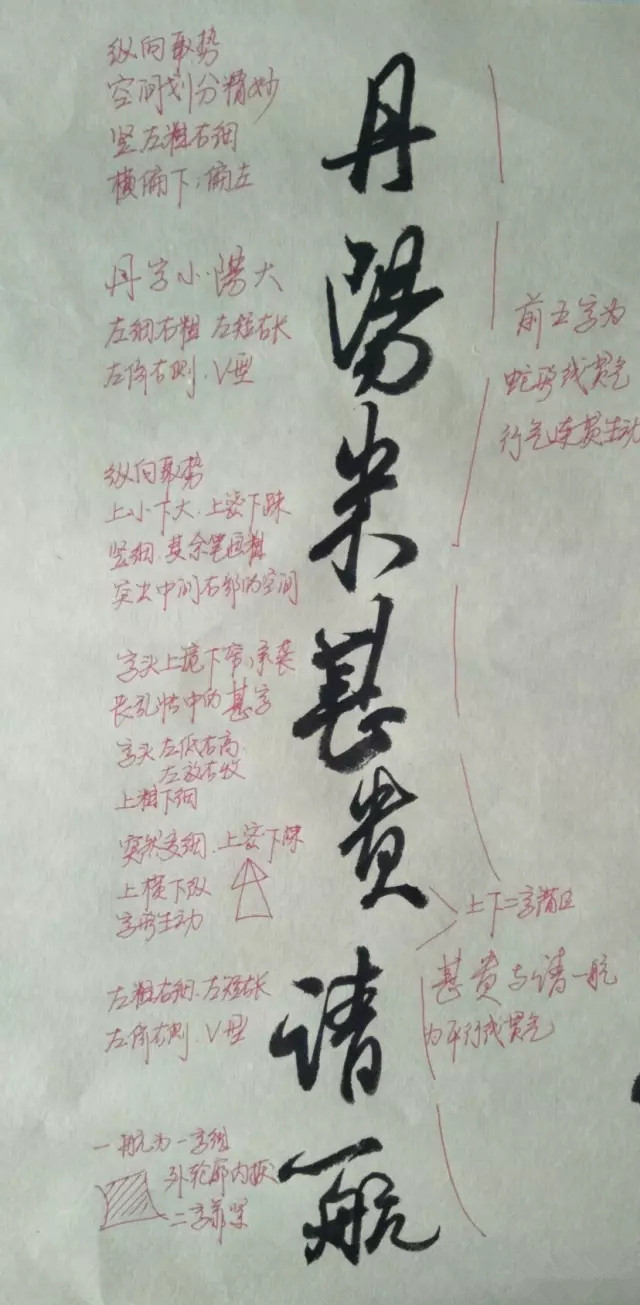 丹陽米甚贵請一航
纵向取势
空间划分精妙
竖左粗右细
横偏下;偏左
丹字小.陽大
左细右粗 左短右长
左倚右则.V型
纵向取势
上小下大.上密下踈
竖细.其余笔画粗
突出中间右部的空间
字头上境下窄,承袭
长孔怙中的甚字
字头左低右高
左放右收
上粗下细
突然变细.上密下踈
上横下纵
字势生动
左粗右细.左短右长
左倚右则.V型
一航为一字组
外轮廓内收
二字靠紧
前五字为
蛇形线贯气
行气连贯生动
上下二字
甚贵与請一航
为平行线贯气